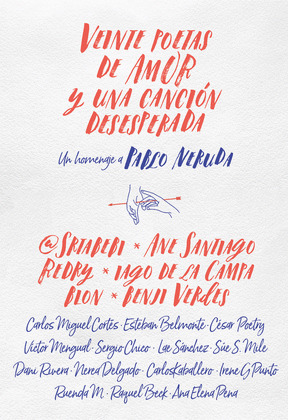 VEINTE POETAS
DE AMOR
Y UNA CANCIÓN
DESESPERADA
Un homenaje a PABLO NERUDA
@SRTABEBI * ANE SANTIAGO
REDRY * IAGO DE LA CAMPA
BION * BENJI VERDES
Carlos Miguel Cortés · Esteban Belmonte · César Poetry
Víctor Mengual · Sergio Chico · Lae Sánchez · Sue S. Mile
Dani Rivera · Nerea Delgado · Carlos Kaballero · Irene G Punto
Ruenda M. · Raquel Beck · Ana Elena Pena